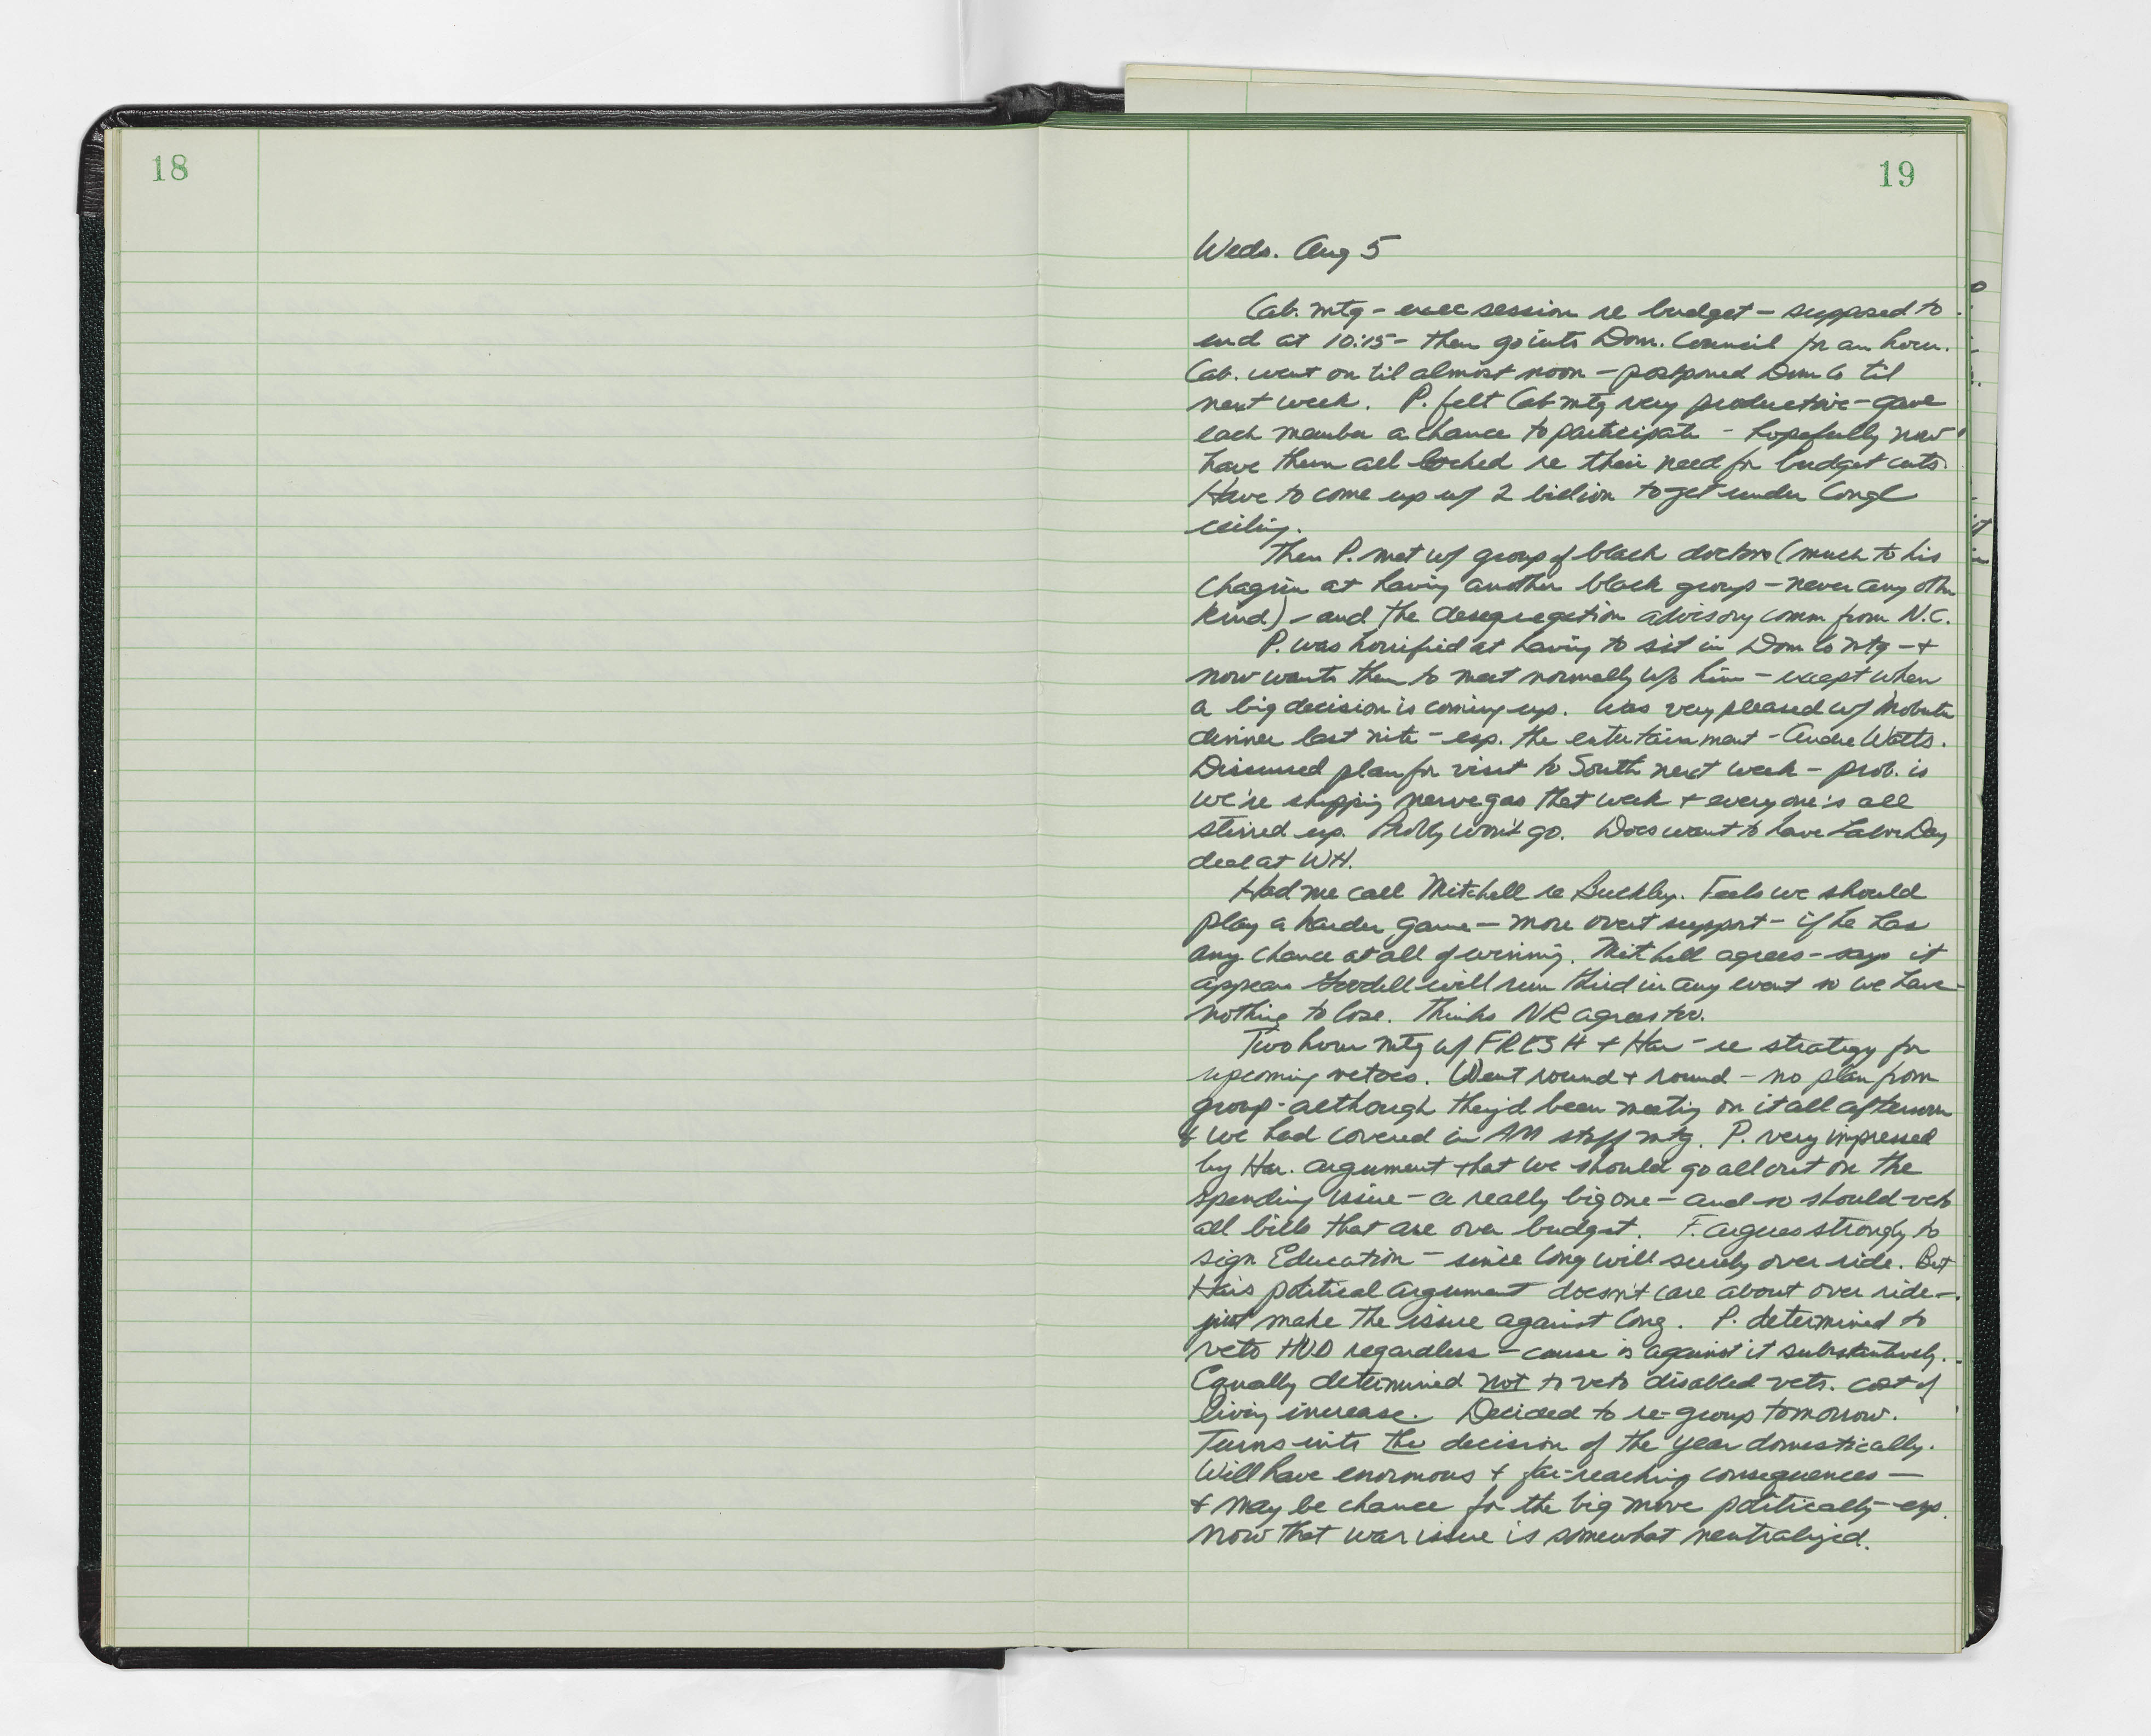 18
19
Weds. Aug 5
Cab. mtg - exec session re budget - supposed to
end at 10:15 - then go into Dom. Council for an hour.
Cab. went on til almost noon - postponed Dom Co til
next week. P. felt Cab mtg very productive - gave
each member a chance to participate - hopefully now
have them all locked re their need for budget cuts.
Have to come up w/ 2 billion to get under Congl
ceiling.
Then P. met w/ group of black doctors (much to his
chagrin at having another black group - never any other
kind) - and the desegregation advisory comm from N.C.
P. was horrified at having to sit in Dom Co mtg - +
now wants them to meet normally w/o him - except when
a big decision is coming up. Was very pleased w/ Mobutu
dinner last nite - esp. the entertainment - Andre Watts.
Discussed plan for visit to South next week - prob. is
we're shipping nerve gas that week + everyone's all
stirred up. Probly won't go. Does want to have Labor Day
deal at WH.
Had me call Mitchell re Buckley. Feels we should
play a harder game - more overt support - if he has
any chance at all of winning. Mitchell agrees - says it
appears Goodell will run third in any event so we have
nothing to lose. Thinks NR agrees too.
Two hour mtg w/ FRESH + Har - re strategy for
upcoming vetoes. Went round + round - no plan from
group - although they'd been meeting on it all afternoon
& we had covered in AM staff mtg. P. very impressed
by Har. argument that we should go all out on the
spending issue - a really big one - and so should veto
all bills that are over budget. F. argues strongly to
sign Education - since Cong will surely over ride. But
Har's political argument doesn't care about over ride -
just make the issue against Cong. P. determined to
veto HUD regardless - cause is against it substantively.
Equally determined not to veto disabled vets. cost of
living increase. Decided to re-group tomorrow.
Turns into the decision of the year domestically.
Will have enormous + far-reaching consequences -
+ may be chance for the big move politically - esp.
now that war issue is somewhat neutralized.